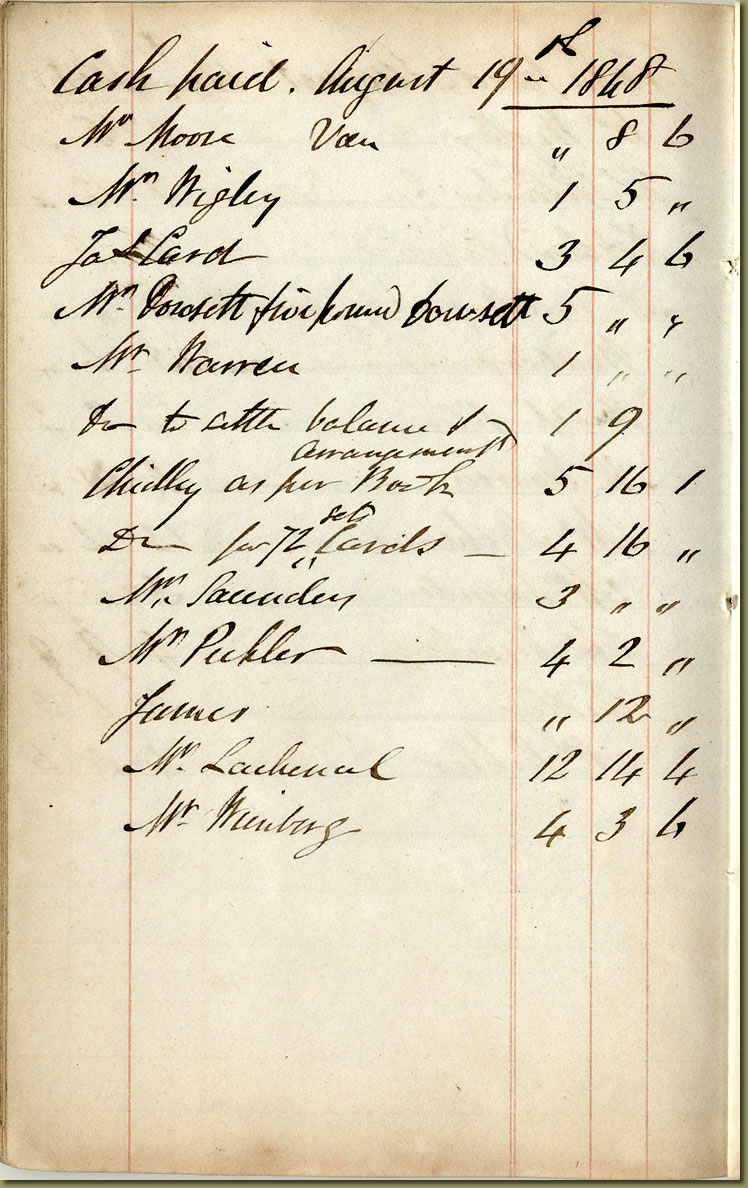 Cash paid. August 19th 1848
Mr Moore Van " 8 6
Mrs Wigley 1 5 "
Jas Card 3 4 6
Mrs Dowsett five pound Dowsett 5 " "
Mr Warren 1 " "
Do to settle balance of 1 9
arrangement
Chidley as per Book 5 16 1
set
Do for 72 Cards — 4 16 "
Mrs Saunders 3 " "
Mrs Peckler — 4 2 "
James " 12 "
Mr Lachenal 12 14 4
Mr Wienberg 4 3 6